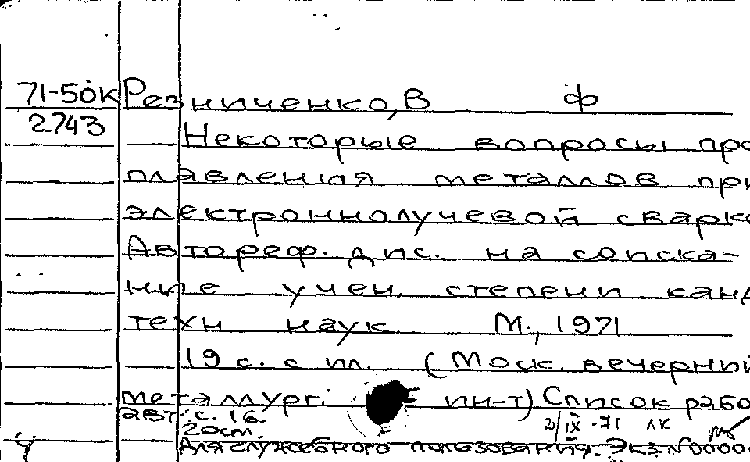 71-50к Резниченко, В Ф
2743 Некоторые вопросы про
плавления металлов при
электроннолучевой сварке
Автореф. дис. на соиска-
ние учен. степени канд
техн наук М., 1971
19 с. с ил. (Моск. вечерний
металлург. ин-т) Список рабо
авт: с. 16.
20 см. 2/IX-71 ЛК
Для служебного пользования. Экз N 0000